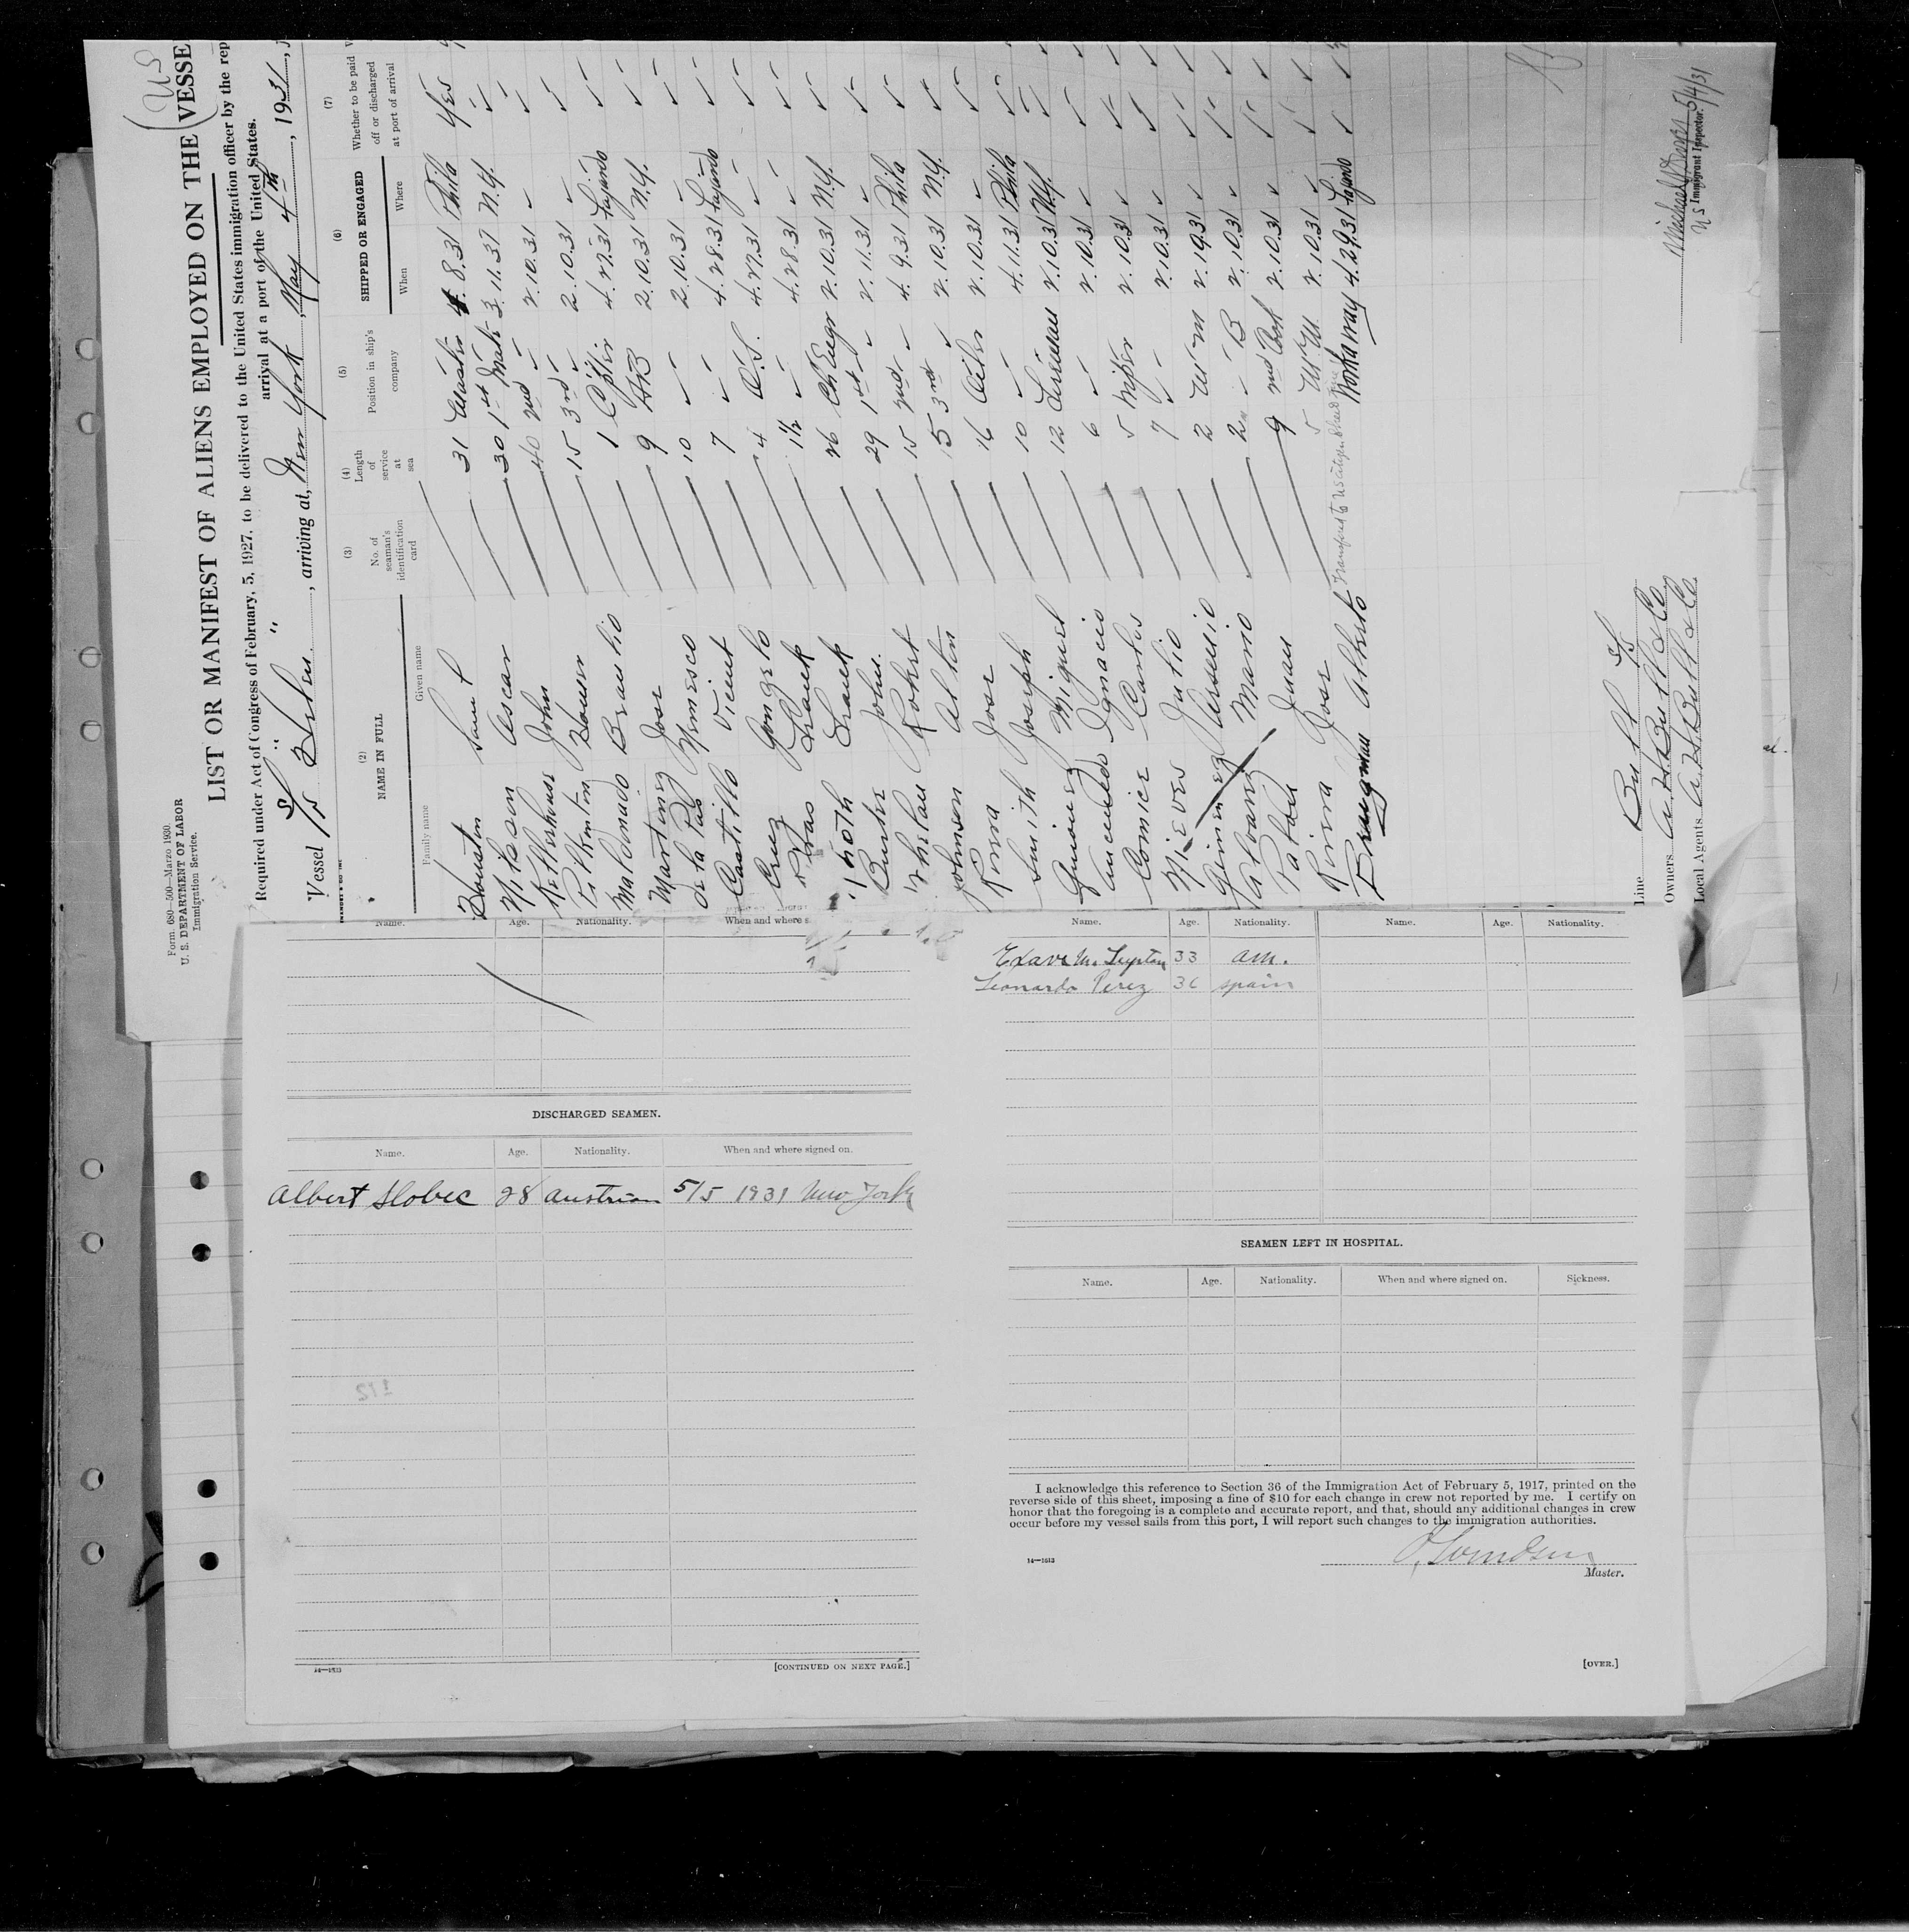 Form 680—500—Marzo 1930
U. S. DEPARTMENT OF LABOR
Immigration Service.
(US
LIST OR MANIFEST OF ALIENS EMPLOYED ON THE VESSE
Required under Act of Congress of February, 5, 1927, to be delivered to the United States immigration officer by the rep
arrival at a port of the United States.
Vessel S/S , arriving at, New York, May 4th, 1931,
(2) (3) (4) (5) (6) (7)
NAME IN FULL No. of seaman's identification card Length of service at sea Position in ship's company SHIPPED OR ENGAGED Whether to be paid off or discharged at port of arrival
Family name Given name When Where
Houston Saml 31 Master 4. 8.31 Phila Yes
Nilsson Oscar 30 1st Mate 3. 11.31 N.Y.
John 40 2nd 2.10.31
Pilkinton Homer 15 3rd 2.10.31
Maldonado Braulio 1 4.27.31 Fajardo
Martinez Jose 9 AB 2.10.31 N.Y.
De la Paz Nemesco 10 2.10.31
Castillo Vicent 7 4.28.31 Fajardo
Cruz Gonzelo 4 O.S. 4.27.31
Frank 1½ 4.28.31
Frank 26 Ch Engr 2.10.31 N.Y.
Burke John 29 1st 2.11.31
Whelan Robert 15 2nd 4.9.31 Phila
Johnson Alton 15 3rd 2.10.31 N.Y.
Rivera Jose 16 Oiler 2.10.31
Smith Joseph 10 4.11.31 Phila
Quinones Miguel 12 Fireman 2.10.31 N.Y.
Ignacio 6 2.10.31
Carlos 5 Wiper 2.10.31
Nieves Julio 7 2.10.31
Gimenez Arsenio 2 2.19.31
Mario 2 2.10.31
Pabon Juan 9 2nd Cook 2.10.31
Rivera Jose 5 2.10.31
Transfered to US citizen
Alberto Workaway 4.29.31 Fajardo
Line Bull S/S
Owners A.H. Bull & Co
Local Agents A.H. Bull & Co.
5/4/31
US Immigrant Inspector.
Name. Age. Nationality. When and where s
DISCHARGED SEAMEN.
Name. Age. Nationality. When and where signed on.
Albert Slobec 28 Austrian 5/5 1931 New York
14—1613
[CONTINUED ON NEXT PAGE.]
Name. Age. Nationality. Name. Age. Nationality.
M. Lupton 33 am.
Leonardo Perez 36 spain
SEAMEN LEFT IN HOSPITAL.
Name. Age. Nationality. When and where signed on. Sickness.
I acknowledge this reference to Section 36 of the Immigration Act of February 5, 1917, printed on the
reverse side of this sheet, imposing a fine of $10 for each change in crew not reported by me. I certify on
honor that the foregoing is a complete and accurate report, and that, should any additional changes in crew
occur before my vessel sails from this port, I will report such changes to the immigration authorities.
14—1613
Master.
[OVER.]